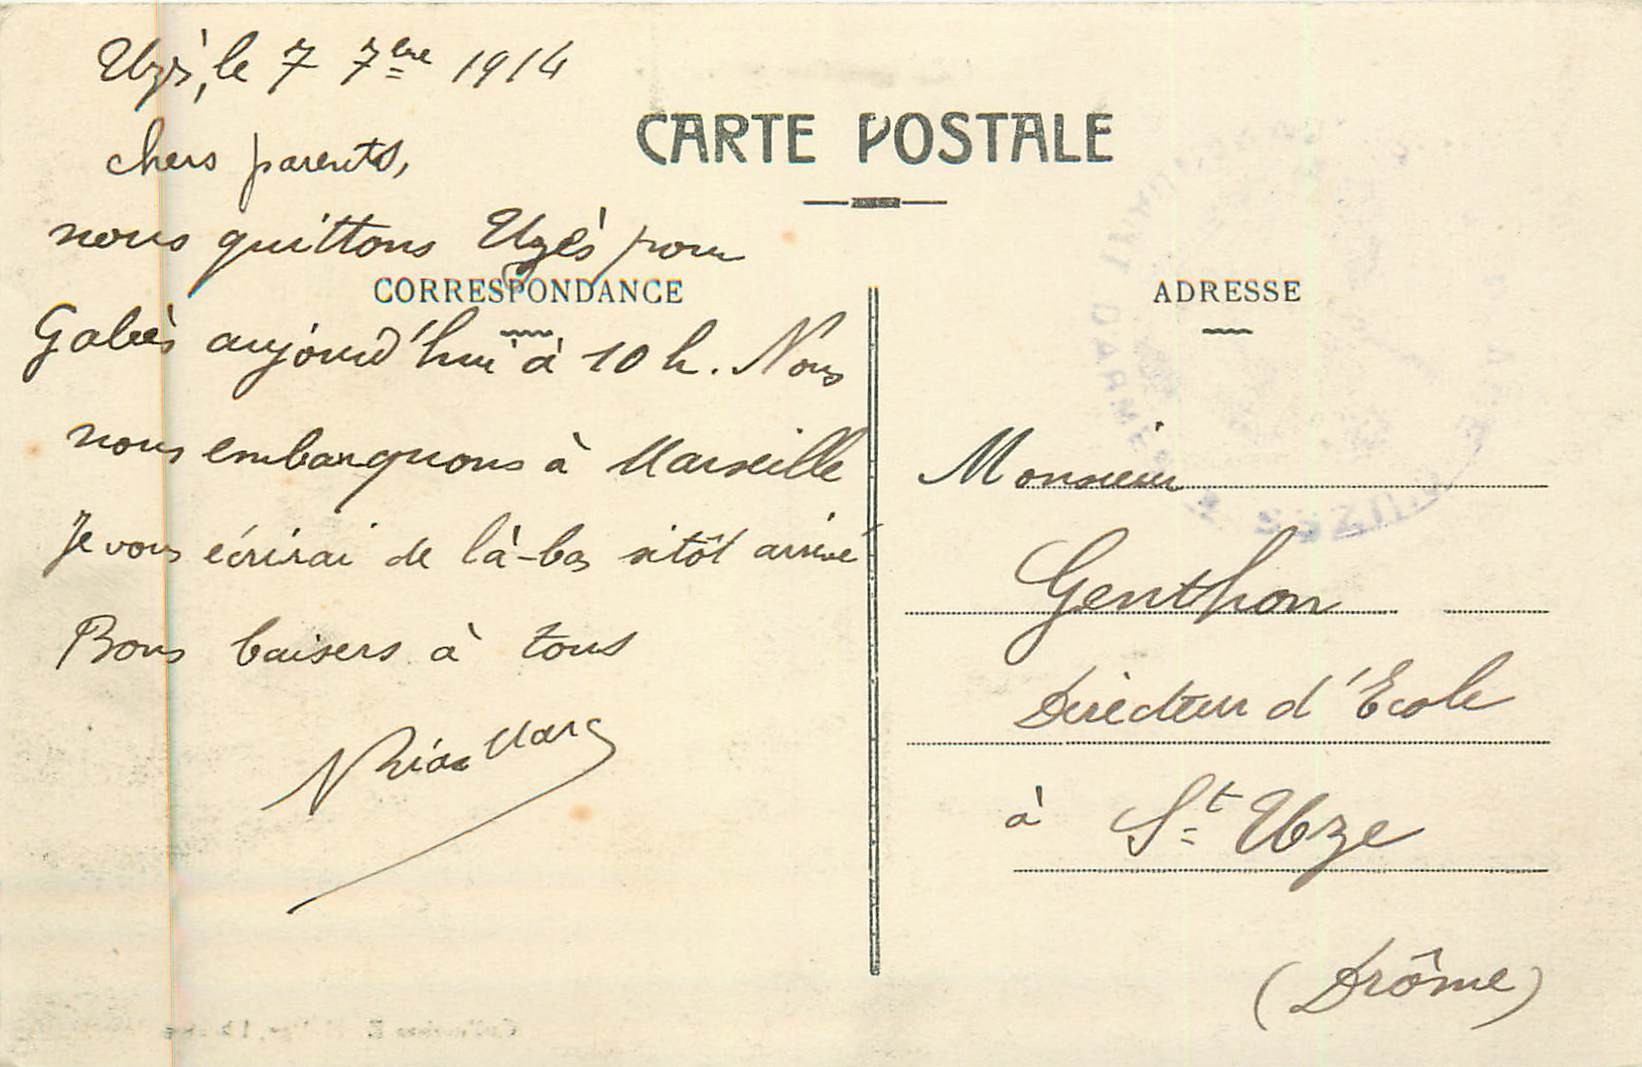 Uzès, le 7 7bre 1914
CARTE POSTALE
chers parents,
nous quittons Uzès pour
CORRESPONDANCE
Gabès aujourd'hui à 10 h. Nous
nous embarquons à Marseille
Je vous écrirai de là-bas sitôt arrivé
Bons baisers à tous
Marc
ADRESSE
Monsieur
Genthon
Directeur d'Ecole
à St Uze
(Drôme)